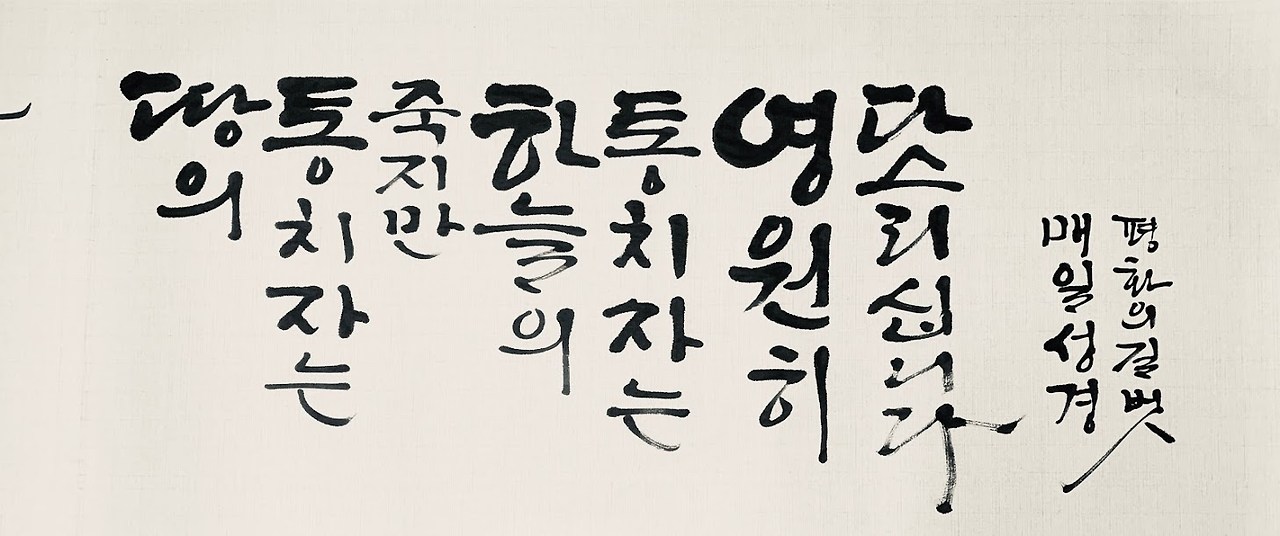 땅의
통치자는
죽지만
하늘의
통치자는
영원히
다스리십니다
매일성경
평화의길벗